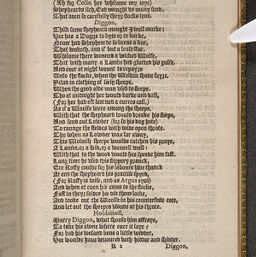 (Ah foy Colin her whilome my ioye)
Shepheards sich, God mought us many send,
That doen so carefully theyr flocks tend.
Diggon.
Thilk same shepheard mought I well marke:
He has a Dogge to byte or to barke,
Never had shepheard so kene a kur,
That waketh, and if but a leafe sturre.
Whilome there wonned a wicked Wolfe,
That with many a Lambe had glutted his gulfe.
And ever at night wont to repayre
Unto the flocke, when the Welkin shone fayre,
Yclad in clothing of seely sheepe,
When the good olde man used to sleepe.
Tho at midnight he would barke and ball,
(For he had eft learned a curres call.)
As if a Woolfe were among the sheepe.
With that the shepheard would breake his sleepe,
And send out Lowder (for so his dog hote)
To raunge the fields with wide open throte.
Tho when as Lowder was far away,
This Wolvish sheepe woulde catchen his pray,
A Lambe, or a Kid, or a weanell wast:
With that to the wood would he speede him fast.
Long time he used this slippery pranck,
Ere Roffy could for his labour him thanck.
At end the shepheard his practise spyed,
(For Roffy is wise, and as Argus eyed)
And when at even he came to the flocke,
Fast in theyr folds he did them locke,
And tooke out the Woolfe in his counterfect cote,
And let out the sheepes bloud at his throte.
Hobbinoll.
Marry Diggon, what should him affraye,
To take his owne where ever it laye?
For had his wesand bene a little widder,
He would have devoured both hidder and shidder.
Diggon.